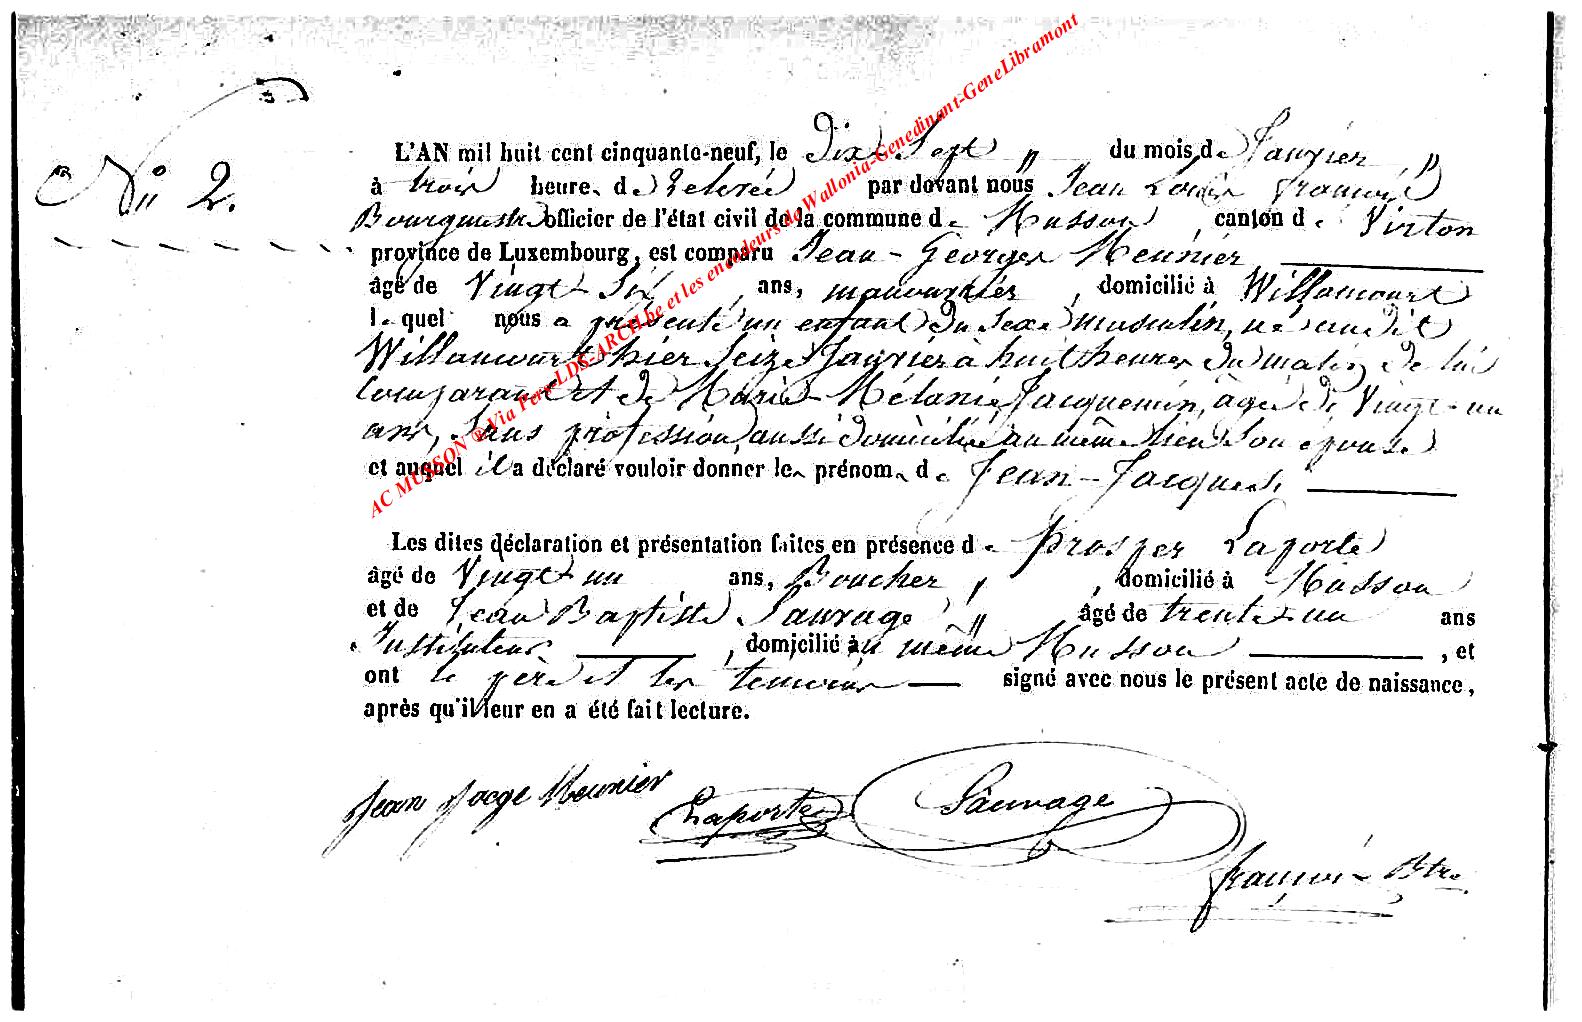 N° 2.
L'AN mil huit cent cinquante-neuf, le Dix-Sept „ du mois de Janvier „
à trois heures de relevée par devant nous Jean Louis François
Bourgmestre officier de l'état civil de la commune de Musson, canton de Virton
province de Luxembourg, est comparu Jean-Georges Meunier
âgé de Vingt-Six, ans, manouvrier, domicilié à Willancourt
lequel nous a présenté un enfant du sexe masculin, né audit
Willancourt hier Seize Janvier à huit heures du matin, de lui
Comparant et de Marie-Mélanie Jacquemin, âgée de Vingt-un
ans, Sans profession, aussi domiciliée au même lieu Son épouse
et auquel il a déclaré vouloir donner les prénoms de Jean-Jacques,
Les dites déclaration et présentation faites en présence de Prosper Laporte
âgé de Vingt-un ans, Boucher, domicilié à Musson
et de Jean Baptiste Sauvage „ âgé de trente-un ans
Instituteur, domicilié au même Musson, et
ont le père et les témoins signé avec nous le présent acte de naissance,
après qu'il leur en a été fait lecture.
Jean Meunier
Laporte
Sauvage
François Btre
AC MUSSON ® Via Pers-LDS-ARCH.be et les encodeurs de Wallonia-Genedinant-GeneLibramont